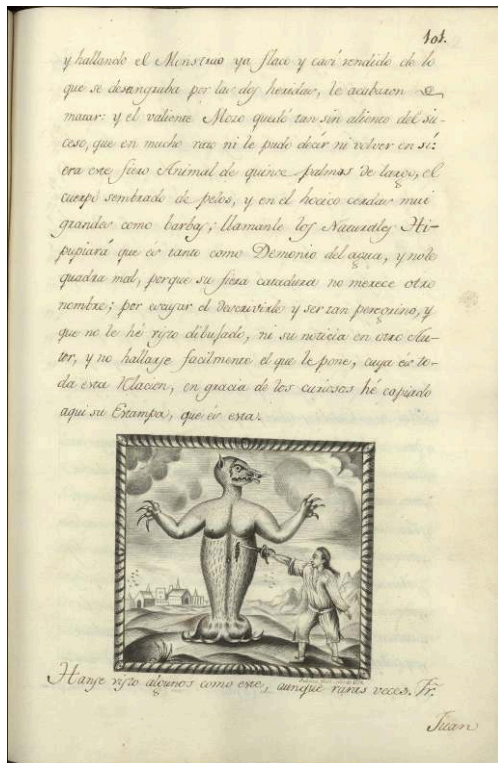 101.
y hallando el Monstruo ya flaco y casi rendido de lo
que se desangraba por las dos heridas, le acabaron de
matar: y el valiente Mozo quedó tan sin aliento del su-
ceso, que en mucho rato ni le pudo decir ni volver en sí:
era este fiero Animal de quince palmos de largo, el
cuerpo sembrado de pelos, y en el hocico cerdas mui
grandes como barbas; llamanle los Naturales Hi-
pupiará que és tanto como Demonio del agua, y no le
quadra mal, porque su fiera catadura no merece otro
nombre; por escusar el descrivirle y ser tan peregrino, y
que no le hé visto dibujado, ni su noticia en otro Au-
tor, y no hallarse facilmente el que le pone, cuya és to-
da esta Relacion, en gracia de los curiosos hé copiado
aqui su Estampa, que és esta.
Hanse visto algunos como este, aunque raras veces. Fr.
Juan